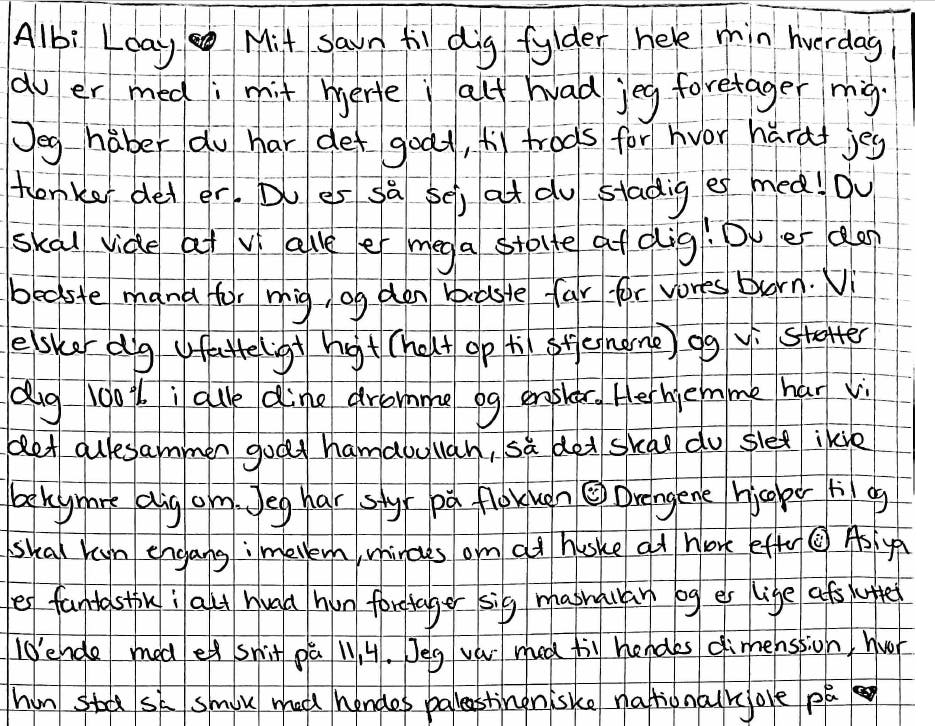 Albi Loay ♥ Mit savn til dig fylder hele min hverdag,
du er med i mit hjerte i alt hvad jeg foretager mig.
Jeg håber du har det godt, til trods for hvor hårdt jeg
tænker det er. Du er så sej at du stadig er med! Du
skal vide at vi alle er mega stolte af dig! Du er den
bedste mand for mig, og den bedste far for vores børn. Vi
elsker dig ufatteligt højt (helt op til stjernerne) og vi støtter
dig 100% i alle dine drømme og ønsker. Herhjemme har vi
det allesammen godt hamdoullah, så det skal du slet ikke
bekymre dig om. Jeg har styr på flokken ☺ Drengene hjælper til og
skal kun engang imellem, mindes om at huske at høre efter ☺ Asiya
er fantastisk i alt hvad hun foretager sig mashallah og er lige afsluttet
10'ende med et snit på 11,4. Jeg var med til hendes dimenssion, hvor
hun stod så smuk med hendes palæstinensiske nationalkjole på ♥